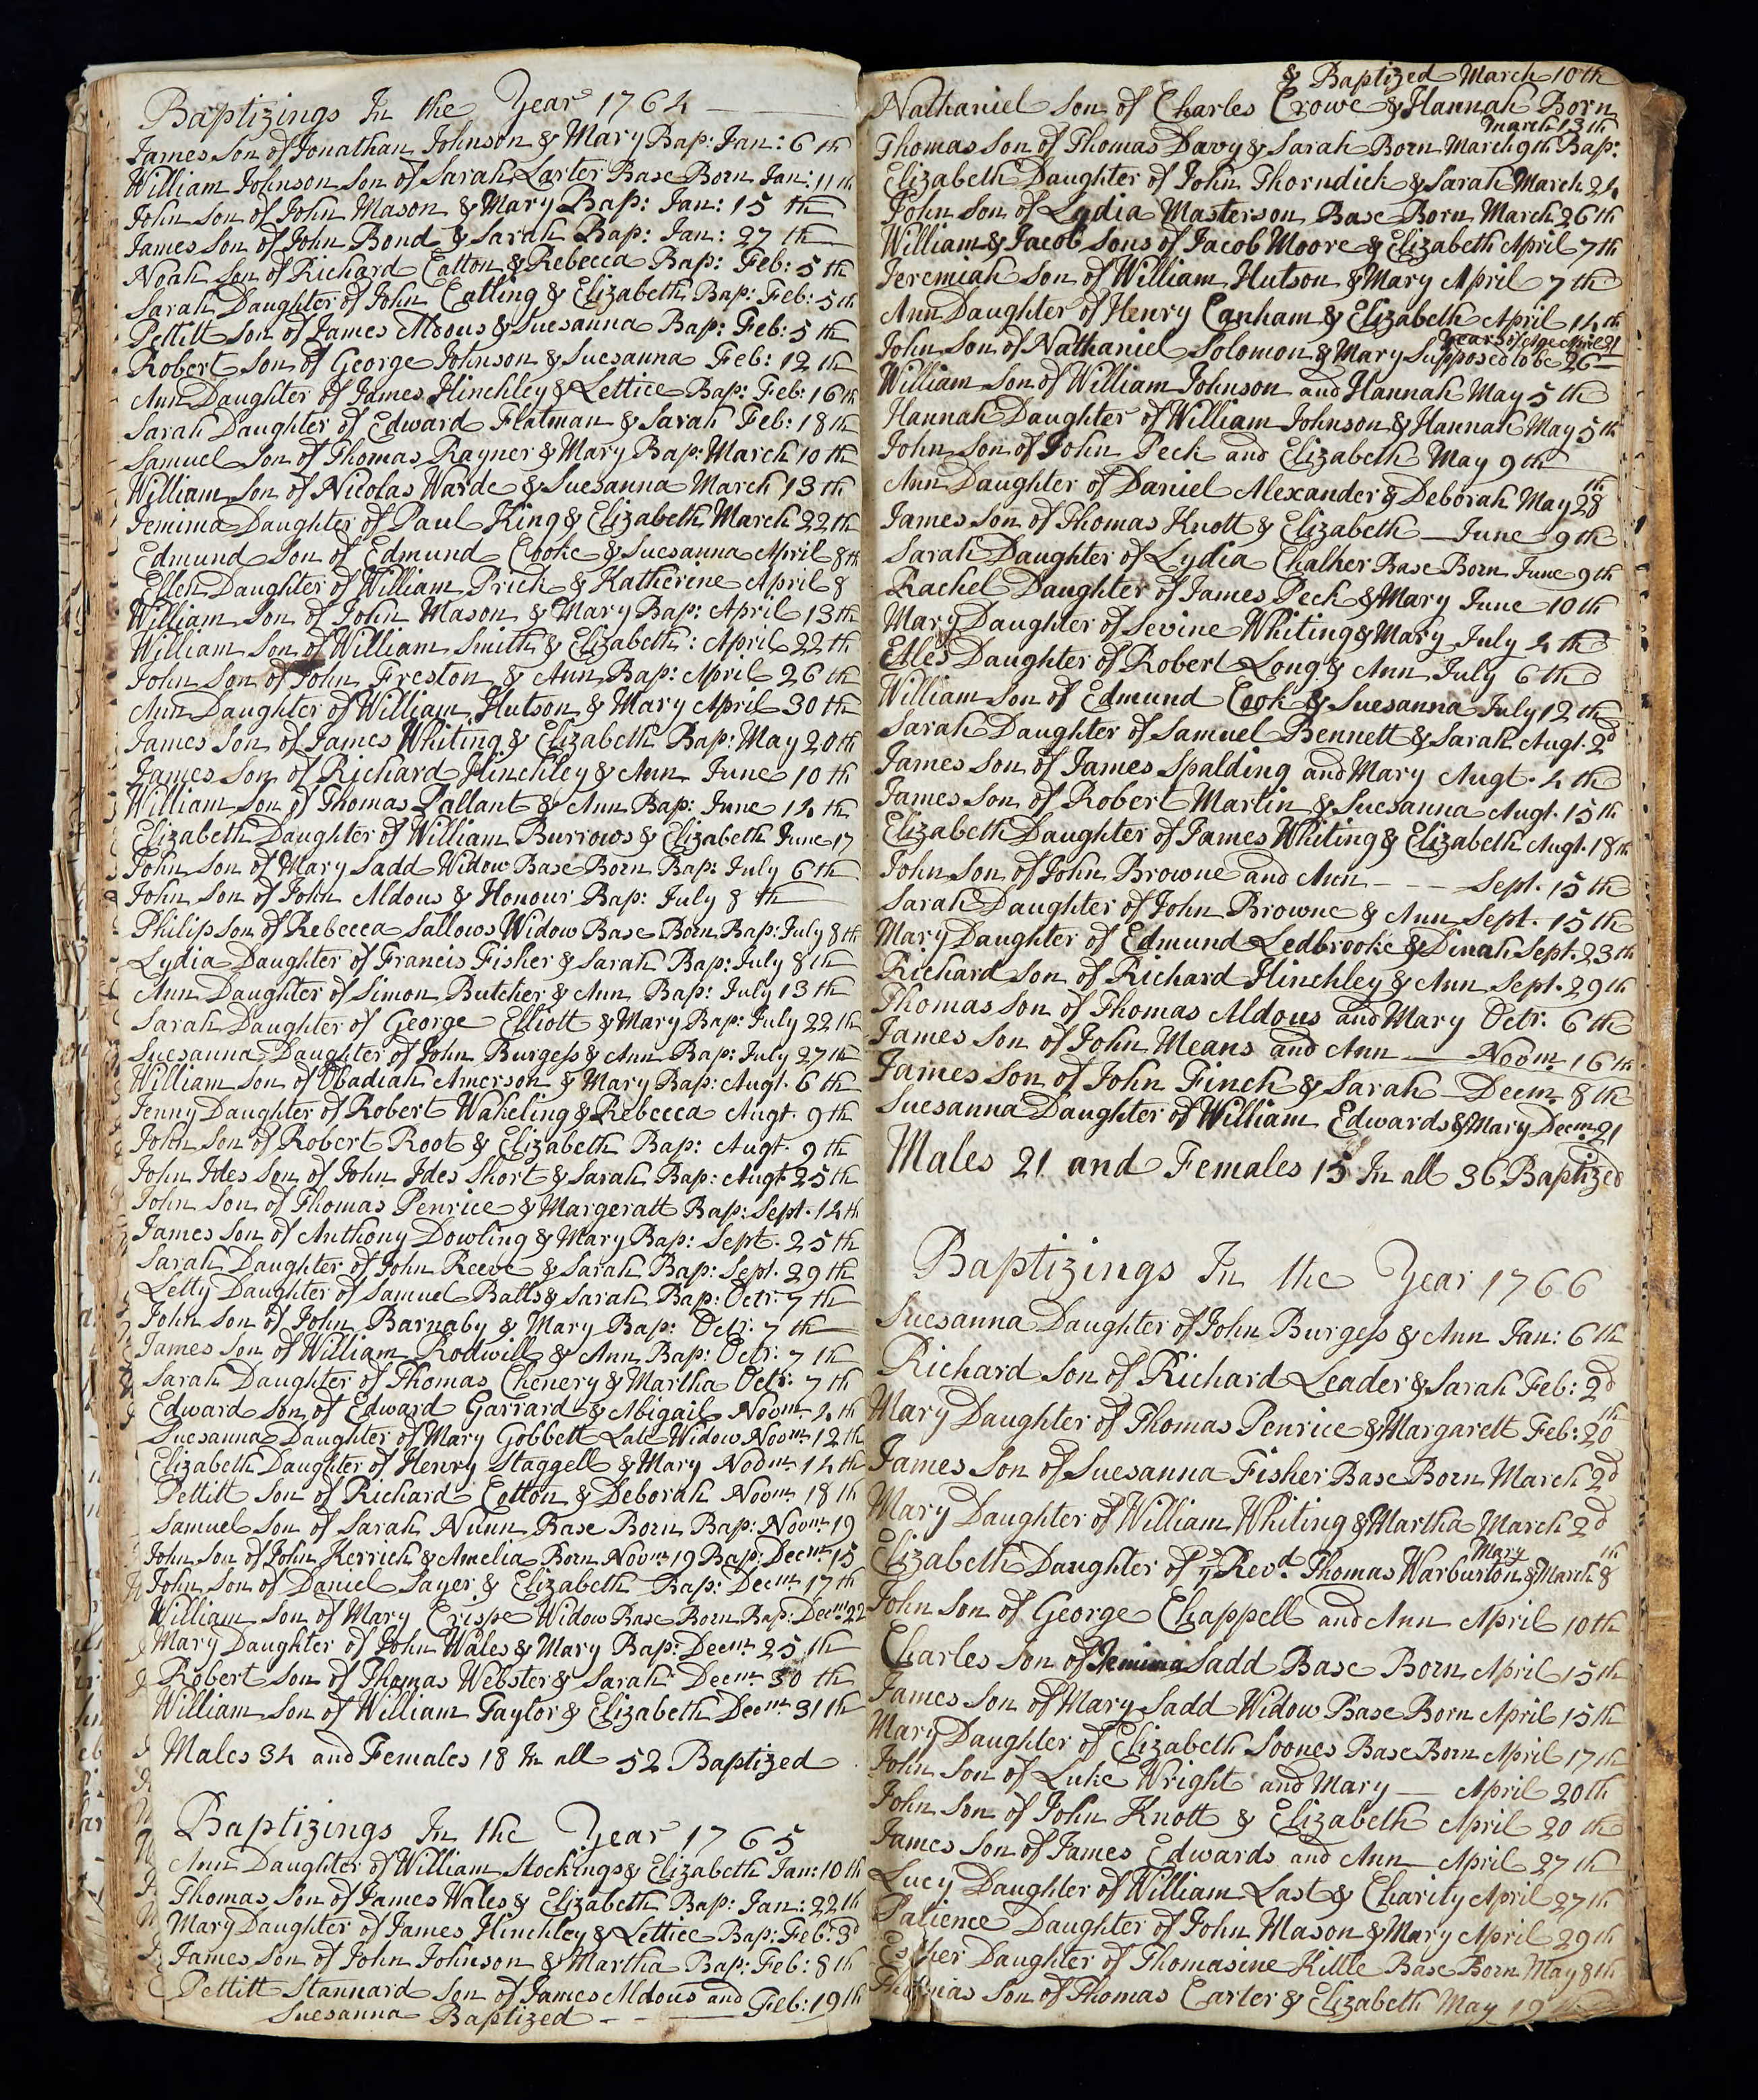 Baptizings In the Year 1764
James Son of Jonathan Johnson & Mary Bap: Jan: 6th
William Johnson Son of Sarah Larter Base Born Jan: 11th
John Son of John Mason & Mary Bap: Jan: 15th
James Son of John Bond & Sarah Bap: Jan: 27th
Noah Son of Richard Catton & Rebecca Bap: Feb: 5th
Sarah Daughter of John Catling & Elizabeth Bap: Feb: 5th
Pettitt Son of James Aldous & Suesanna Bap: Feb: 5th
Robert Son of George Johnson & Suesanna Feb: 12th
Ann Daughter of James Hinchley & Lettice Bap: Feb: 16th
Sarah Daughter of Edward Flatman & Sarah Feb: 18th
Samuel Son of Thomas Rayner & Mary Bap: March 10th
William Son of Nicolas Warde & Suesanna March 13th
Jemima Daughter of Paul King & Elizabeth March 22th
Edmund Son of Edmund Cooke & Suesanna April 8th
Ellen Daughter of William Prick & Katherine April 8
William Son of John Mason & Mary Bap: April 13th
William Son of William Smith & Elizabeth: April 22th
John Son of John Freston & Ann Bap: April 26th
Ann Daughter of William Hutson & Mary April 30th
James Son of James Whiting & Elizabeth Bap: May 20th
James Son of Richard Hinchley & Ann June 10th
William Son of Thomas Pallant & Ann Bap: June 14th
Elizabeth Daughter of William Burrows & Elizabeth June 17
John Son of Mary Sadd Widow Base Born Bap: July 6th
John Son of John Aldous & Honour Bap: July 8th
Philip Son of Rebecca Sallows Widow Base Born Bap: July 8th
Lydia Daughter of Francis Fisher & Sarah Bap: July 8th
Ann Daughter of Simon Butcher & Ann Bap: July 13th
Sarah Daughter of George Elliott & Mary Bap: July 22th
Suesanna Daughter of John Burgess & Ann Bap: July 27th
William Son of Obadiah Amerson & Mary Bap: Augt. 6th
Jenny Daughter of Robert Wakeling & Rebecca Augt. 9th
John Son of Robert Root & Elizabeth Bap: Augt. 9th
John Ides Son of John Ides Short & Sarah Bap: Augt 25th
John Son of Thomas Penrice & Margeratt Bap: Sept. 14th
James Son of Anthony Dowling & Mary Bap: Sept. 25th
Sarah Daughter of John Reeve & Sarah Bap: Sept. 29th
Letty Daughter of Samuel Batts & Sarah Bap: Octr. 7th
John Son of John Barnaby & Mary Bap: Octr. 7th
James Son of William Rodwill & Ann Bap: Octr. 7th
Sarah Daughter of Thomas Chenery & Martha Octr. 7th
Edward Son of Edward Garrard & Abigail Novm. 4th
Suesanna Daughter of Mary Gobbett Late Widow Novm. 12th
Elizabeth Daughter of Henry Staggell & Mary Novm. 14th
Pettitt Son of Richard Cotton & Deborah Novm. 18th
Samuel Son of Sarah Nunn Base Born Bap: Novm. 19
John Son of John Kerrich & Amelia Born Novm. 19 Bap: Decm. 15
John Son of Daniel Sayer & Elizabeth Bap: Decm. 17th
William Son of Mary Crispe Widow Base Born Bap: Decm. 22
Mary Daughter of John Wales & Mary Bap: Decm. 25th
Robert Son of Thomas Webster & Sarah Decm. 30th
William Son of William Taylor & Elizabeth Decm. 31th
Males 34 and Females 18 In all 52 Baptized
Baptizings In the Year 1765
Ann Daughter of William Stockings & Elizabeth Jan: 10th
Thomas Son of James Wales & Elizabeth Bap: Jan: 22th
Mary Daughter of James Hinchley & Lettice Bap: Feb: 3d
James Son of John Johnson & Martha Bap: Feb: 8th
Pettitt Stannard Son of James Aldous and Feb: 19th
Suesanna Baptized
& Baptized March 10th
Nathaniel Son of Charles Crowe & Hannah Born
March 13th
Thomas Son of Thomas Davy & Sarah Born March 9th Bap:
Elizabeth Daughter of John Thorndick & Sarah March 24
John Son of Lydia Masterson Base Born March 26th
William & Jacob Sons of Jacob Moore & Elizabeth April 7th
Jeremiah Son of William Hutson & Mary April 7th
Ann Daughter of Henry Canham & Elizabeth April 14th
Years of Age April 21
John Son of Nathaniel Solomon & Mary Supposed to be 26
William Son of William Johnson and Hannah May 5th
Hannah Daughter of William Johnson & Hannah May 5th
John Son of John Peck and Elizabeth May 9th
Ann Daughter of Daniel Alexander & Deborah May 28th
James Son of Thomas Knott & Elizabeth June 9th
Sarah Daughter of Lydia Chalker Base Born June 9th
Rachel Daughter of James Peck & Mary June 10th
Mary Daughter of Sevine Whiting & Mary July 4th
Daughter of Robert Long & Ann July 6th
William Son of Edmund Cook & Suesanna July 12th
Sarah Daughter of Samuel Bennett & Sarah Augt. 2d
James Son of James Spalding and Mary Augt. 4th
James Son of Robert Martin & Suesanna Augt. 15th
Elizabeth Daughter of James Whiting & Elizabeth Augt. 18th
John Son of John Browne and Ann - - - Sept. 15th
Sarah Daughter of John Browne & Ann Sept. 15th
Mary Daughter of Edmund Ledbrooke & Dinah Sept. 23th
Richard Son of Richard Hinchley & Ann Sept. 29th
Thomas Son of Thomas Aldous and Mary Octr. 6th
James Son of John Means and Ann Novm. 16th
James Son of John Finch & Sarah Decm. 8th
Suesanna Daughter of William Edwards & Mary Decm. 21
Males 21 and Females 15 In all 36 Baptized
Baptizings In the Year 1766
Suesanna Daughter of John Burgess & Ann Jan: 6th
Richard Son of Richard Leader & Sarah Feb: 2d
Mary Daughter of Thomas Penrice & Margarett Feb: 20th
James Son of Suesanna Fisher Base Born March 2d
Mary Daughter of William Whiting & Martha March 2d
Mary
Elizabeth Daughter of ye Revd. Thomas Warburton & March 8th
John Son of George Chappell and Ann April 10th
Charles Son of Jemima Sadd Base Born April 15th
James Son of Mary Sadd Widow Base Born April 15th
Mary Daughter of Elizabeth Soones Base Born April 17th
John Son of Luke Wright and Mary April 20th
John Son of John Knott & Elizabeth April 20th
James Son of James Edwards and Ann April 27th
Lucy Daughter of William Last & Charity April 27th
Patience Daughter of John Mason & Mary April 29th
Esther Daughter of Thomasine Kittle Base Born May 8th
Son of Thomas Carter & Elizabeth May 19th